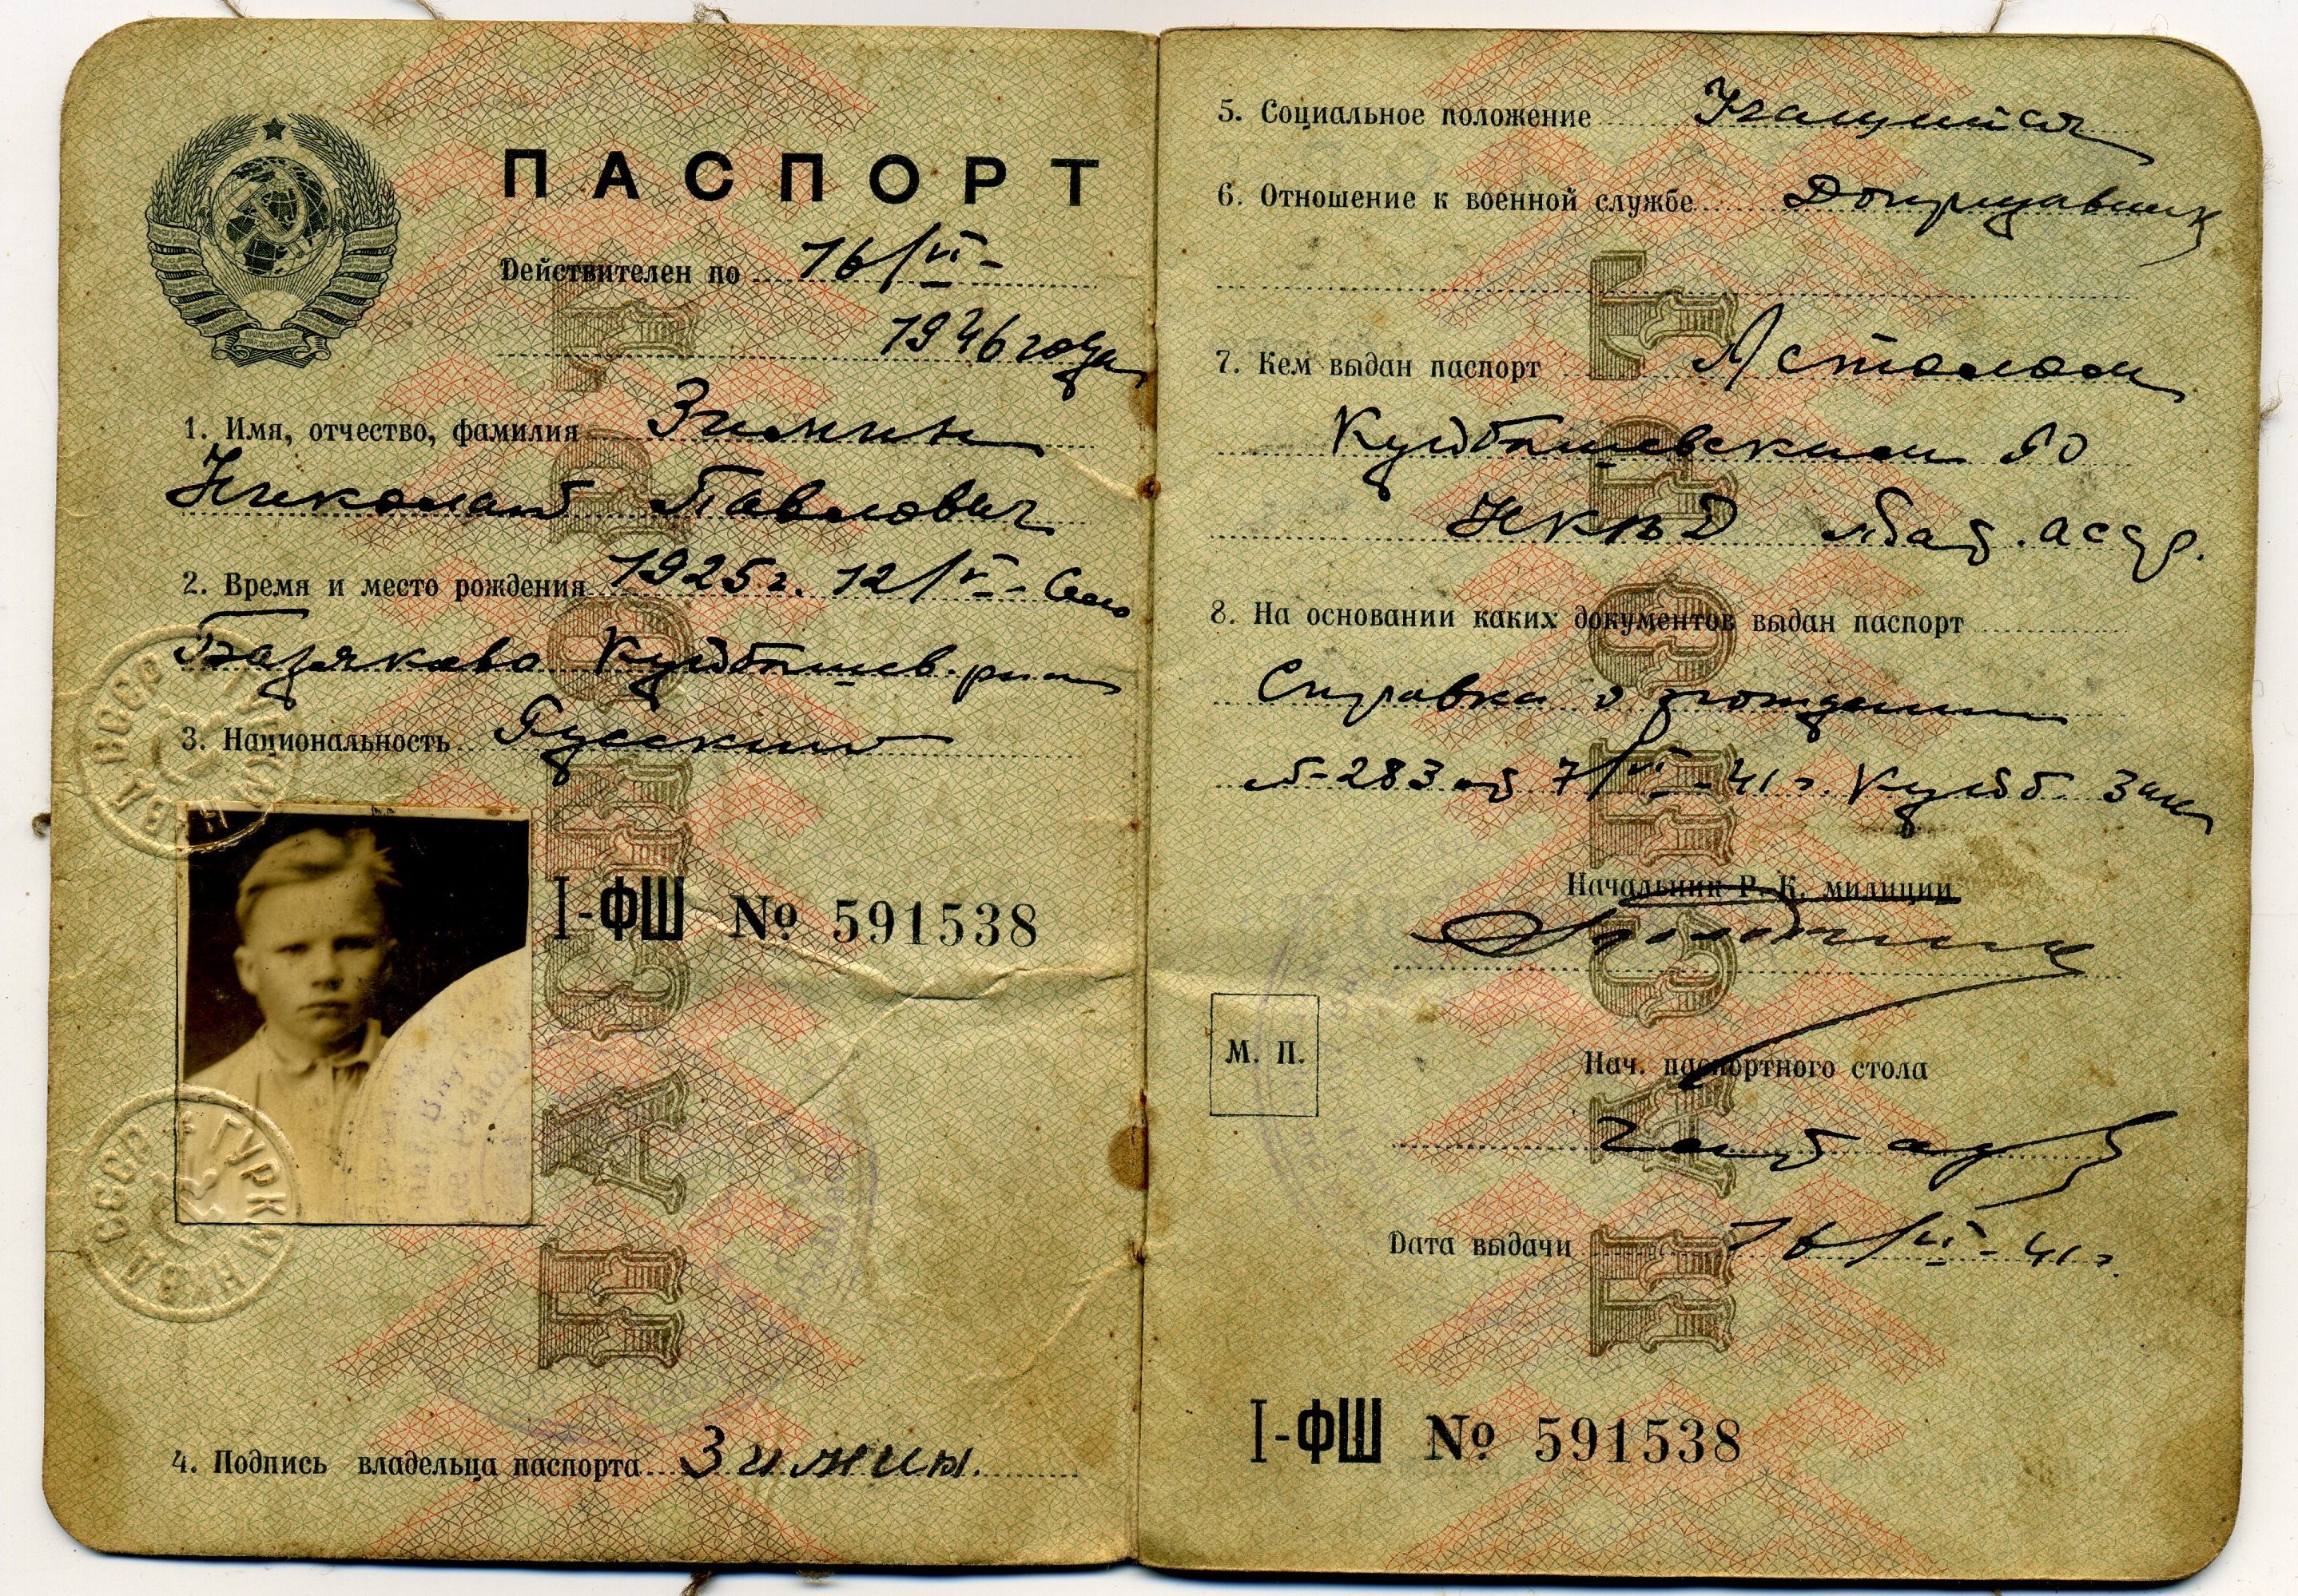 ПАСПОРТ
Действителен по 16/VI-
1946 года
1. Имя, отчество, фамилия Зимин
Николай Павлович
2. Время и место рождения 1925 г. 12/VI- Село
Базяково Куйбышев. р-на
3. Национальность Русский
НКВД СССР ГУРКМ
I-ФШ № 591538
НКВД СССР ГУРКМ
4. Подпись владельца паспорта Зимин.
ПАСПОРТ
5. Социальное положение Учащийся
6. Отношение к военной службе Допризывник
7. Кем выдан паспорт Истолом
Куйбышевским РО
НКВД Тат. АССР.
8. На основании каких документов выдан паспорт
Справка о рождении
№-283 от 7/VI-41 г. Куйб
Начальник Р. К. милиции
М. П.
Нач. паспортного стола
Дата выдачи 16/VI-41 г.
I-ФШ № 591538
ПАСПОРТ